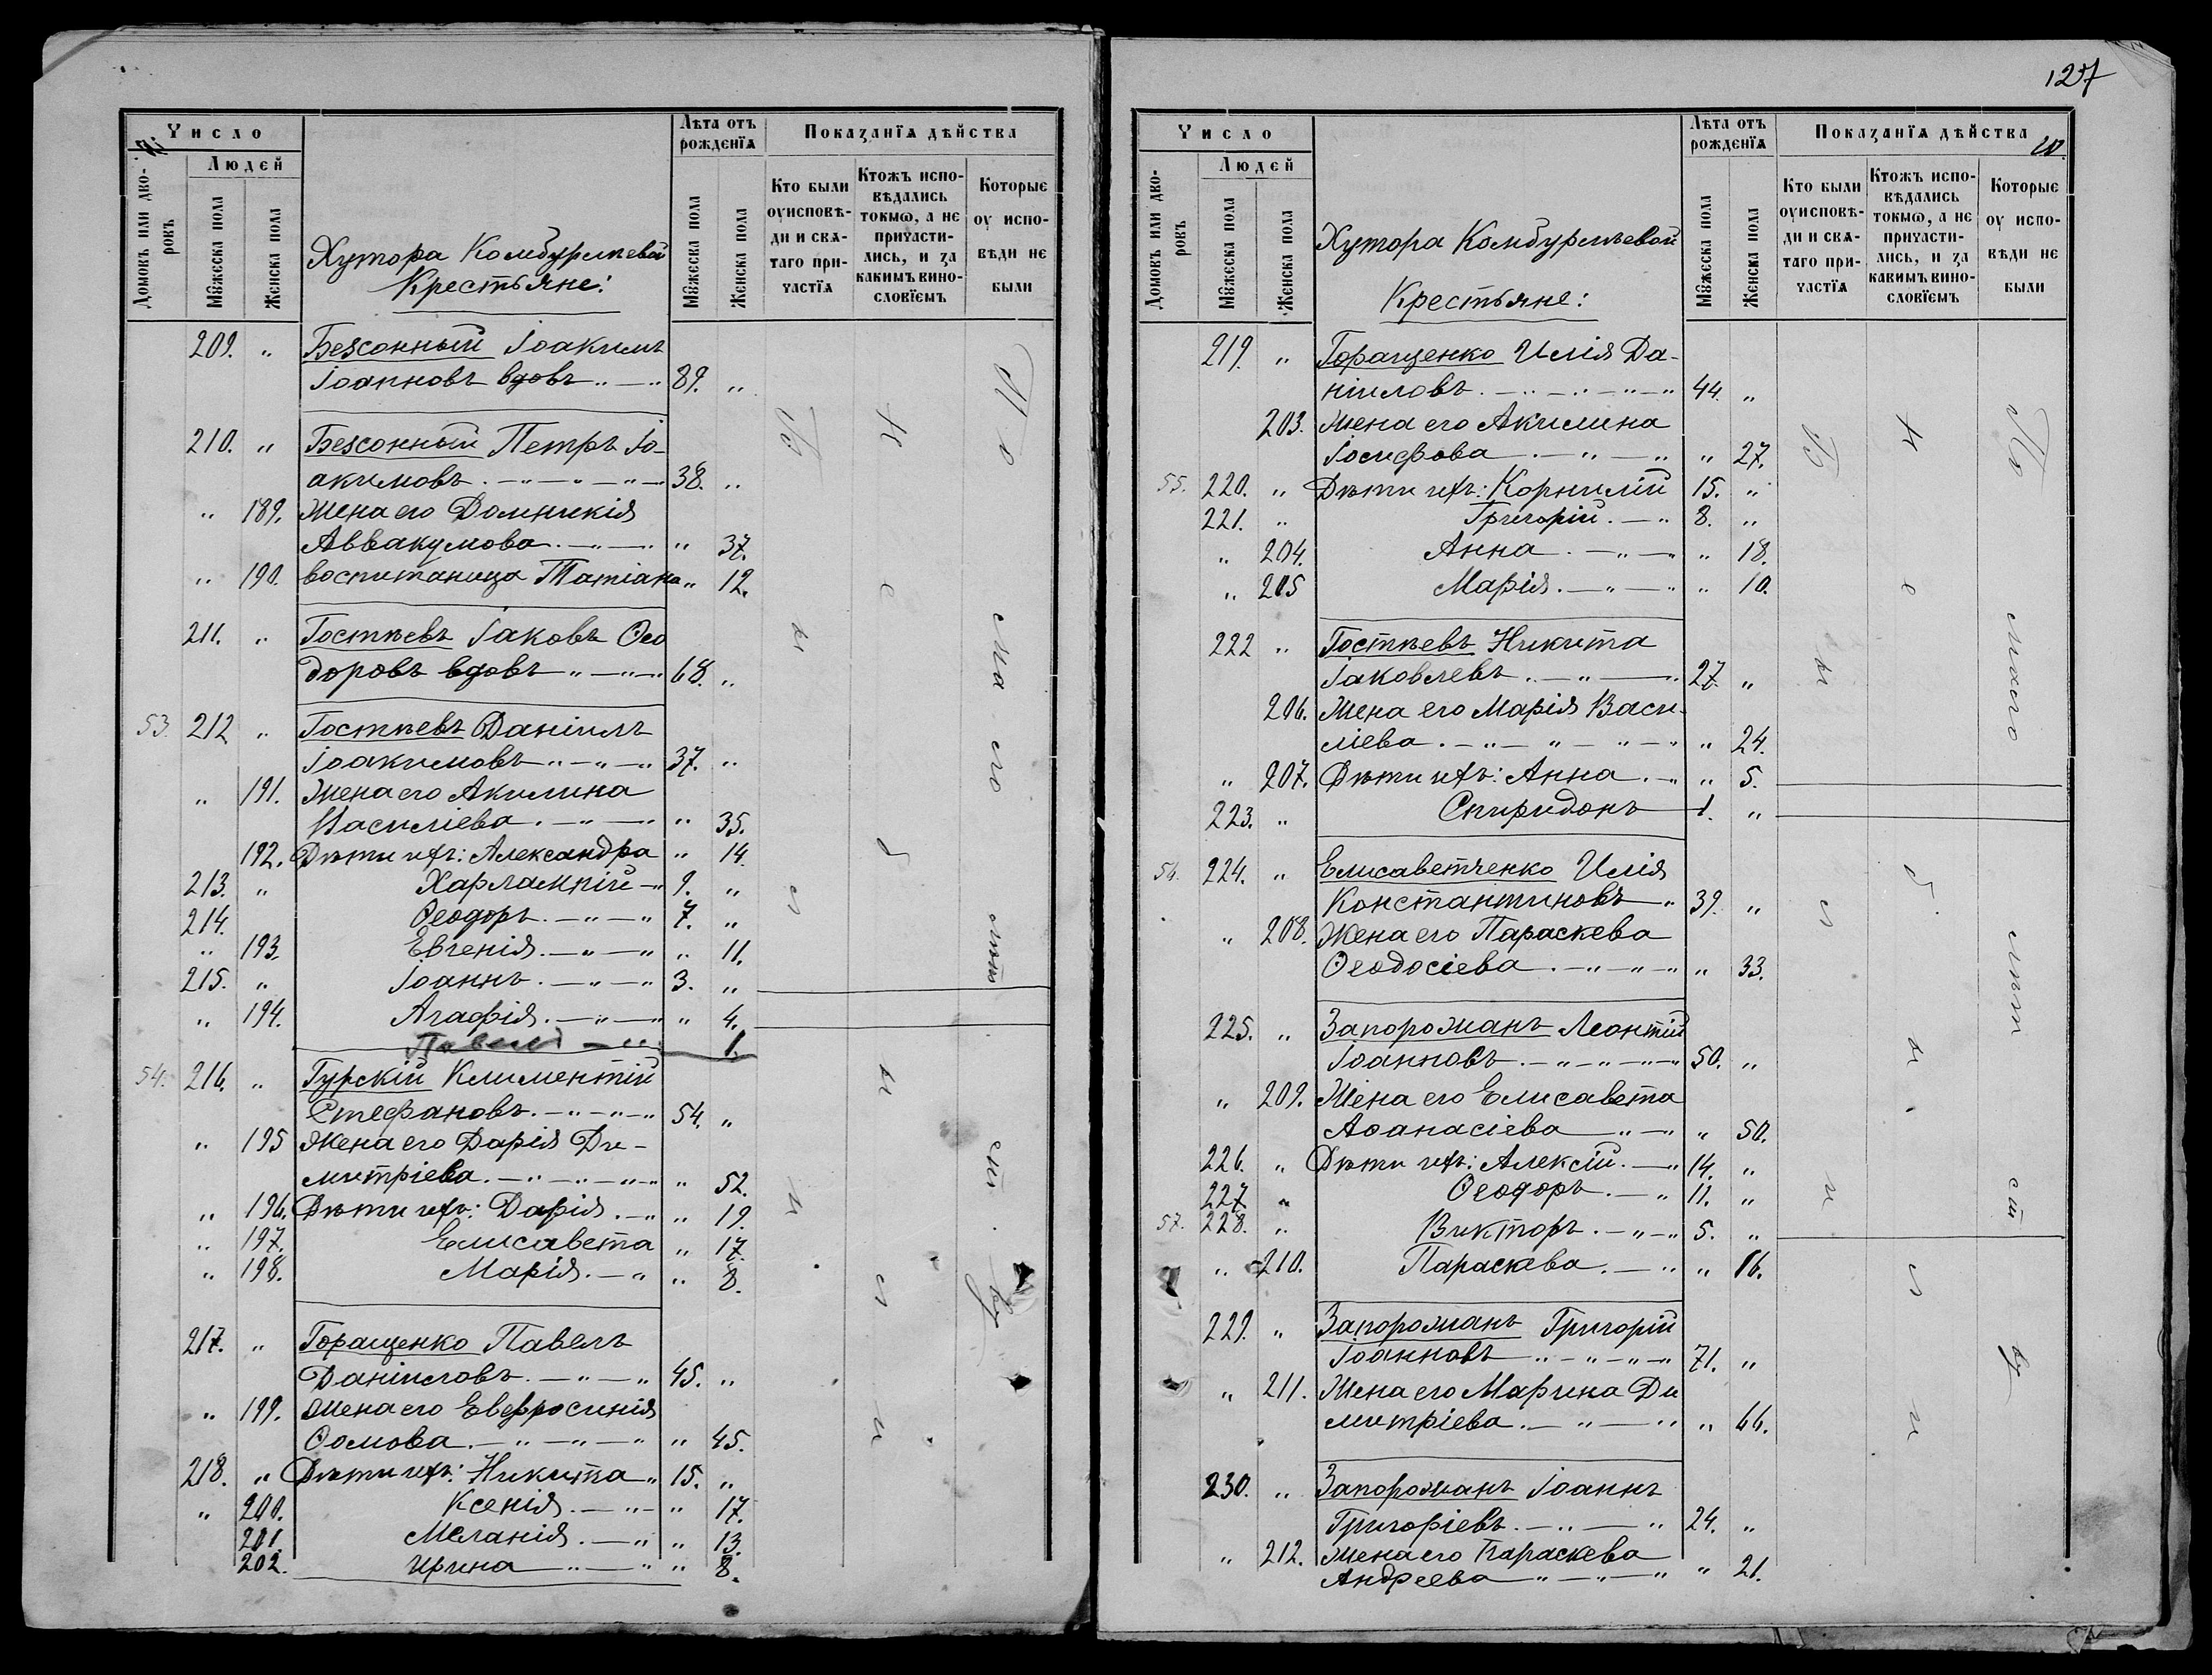 Число
Людей
Домовъ или дворовъ
Мꙋжеска пола
Женска пола
Хутора Комбурлѣевой
Крестьяне:
Лѣта отъ рожденїѧ
Мꙋжеска пола
Женска пола
Показанїѧ дѣйства
Кто были оу исповѣди и свѧтаго причастїѧ
Ктожъ исповѣдались токмѡ, а не причастились, и за какимъ винословїемъ
Которые оу исповѣди не были
209. „ Безсонный Іоакимъ
Іоанновъ вдовъ „ — „ 89. „
210. „ Безсонный Петръ Іо-
акимовъ . — „ — „ — „ — 38. „
„ 189. Жена его Домникія
Аввакумова . — „ — „ „ 37.
„ 190. воспитаница Татіана „ 12.
211. „ Гостѣевъ Іаковъ Ѳео
доровъ вдовъ „ — „ — „ 68. „
53. 212 „ Гостѣевъ Даніилъ
Іоакимовъ „ — „ — „ 37. „
„ 191. Жена его Акилина
Василіева . — „ — „ „ 35.
192. Дѣти ихъ: Александра „ 14.
213. „ Харлампій — „ 9. „
214. Ѳеодоръ . — „ — „ 7. „
„ 193. Евгенія . — „ — „ „ 11.
215. „ Іоаннъ . — „ — „ 3. „
„ 194. Агафія . — „ — „ „ 4.
Павелъ — „ 1.
54. 216. „ Гурскій Климентій
Стефановъ . — „ — „ — „ 54. „
„ 195 Жена его Дарія Ди-
митріева . — „ — „ — „ „ 52.
„ 196. Дѣти ихъ: Дарія . — „ „ 19.
„ 197. Елисавета „ 17.
„ 198. Марія . — „ „ 8.
217. „ Горащенко Павелъ
Даніиловъ . — „ — „ 45. „
„ 199. Жена его Евфросинія
Ѳомова . — „ — „ — „ „ 45.
218. „ Дѣти ихъ: Никита „ 15. „
„ 200. Ксенія . — „ — „ 17.
201. Меланія . — „ „ 13.
202. Ирина „ — „ „ 8.
По малолѣтству
Бы
ли
Не
127
Число
Людей
Домовъ или дворовъ
Мꙋжеска пола
Женска пола
Хутора Комбурлѣевой
Крестьяне:
Лѣта отъ рожденїѧ
Мꙋжеска пола
Женска пола
Показанїѧ дѣйства
Кто были оу исповѣди и свѧтаго причастїѧ
Ктожъ исповѣдались токмѡ, а не причастились, и за какимъ винословїемъ
Которые оу исповѣди не были
219. „ Горащенко Илія Да-
ніиловъ . — „ — „ — „ — „ 44. „
203. Жена его Акилина
Іосифова . — „ — „ „ 27.
55. 220. „ Дѣти ихъ: Корнилій 15. „
221. „ Григорій . — „ 8. „
„ 204. Анна . — „ — „ „ 18.
„ 205 Марія . — „ — „ „ 10.
222 „ Гостѣевъ Никита
Іаковлевъ . — „ — „ 27. „
206. Жена его Марія Васи-
ліева . — „ — „ — „ — „ „ 24.
„ 207. Дѣти ихъ: Анна . — „ „ 5.
223. „ Спиридонъ 1. „
56. 224. „ Елисаветченко Илія
Константиновъ „ 39. „
„ 208. Жена его Параскева
Ѳеодосіева . — „ — „ — „ „ 33.
225. „ Запорожанъ Леонтій
Іоанновъ . — „ — „ — „ — „ 50. „
„ 209. Жена его Елисавета
Аѳанасіева — „ — „ „ 50.
226. „ Дѣти ихъ: Алексій . — „ 14. „
227 „ Ѳеодоръ . — „ 11. „
57. 228. „ Викторъ . — „ — „ 5. „
„ 210. Параскева . — „ „ 16.
229. „ Запорожанъ Григорій
Іоанновъ „ — „ — „ — „ 71. „
„ 211. Жена его Марина Ди
митріева . — „ — „ „ 66.
230. „ Запорожанъ Іоаннъ
Григоріевъ . — „ — „ 24. „
„ 212. Жена его Параскева
Андреева „ — „ — „ „ 21.